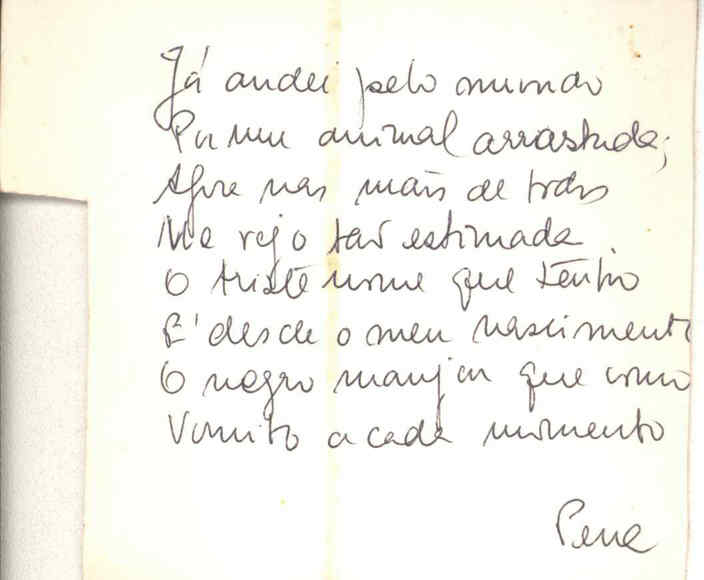 Já andei pelo mundo
Por um animal arrastada;
Agora nas mãos de todos
Me vejo tão estimada.
O triste nome que tenho
É desde o meu nascimento
O negro manjar que como
Vomito a cada momento
Pena